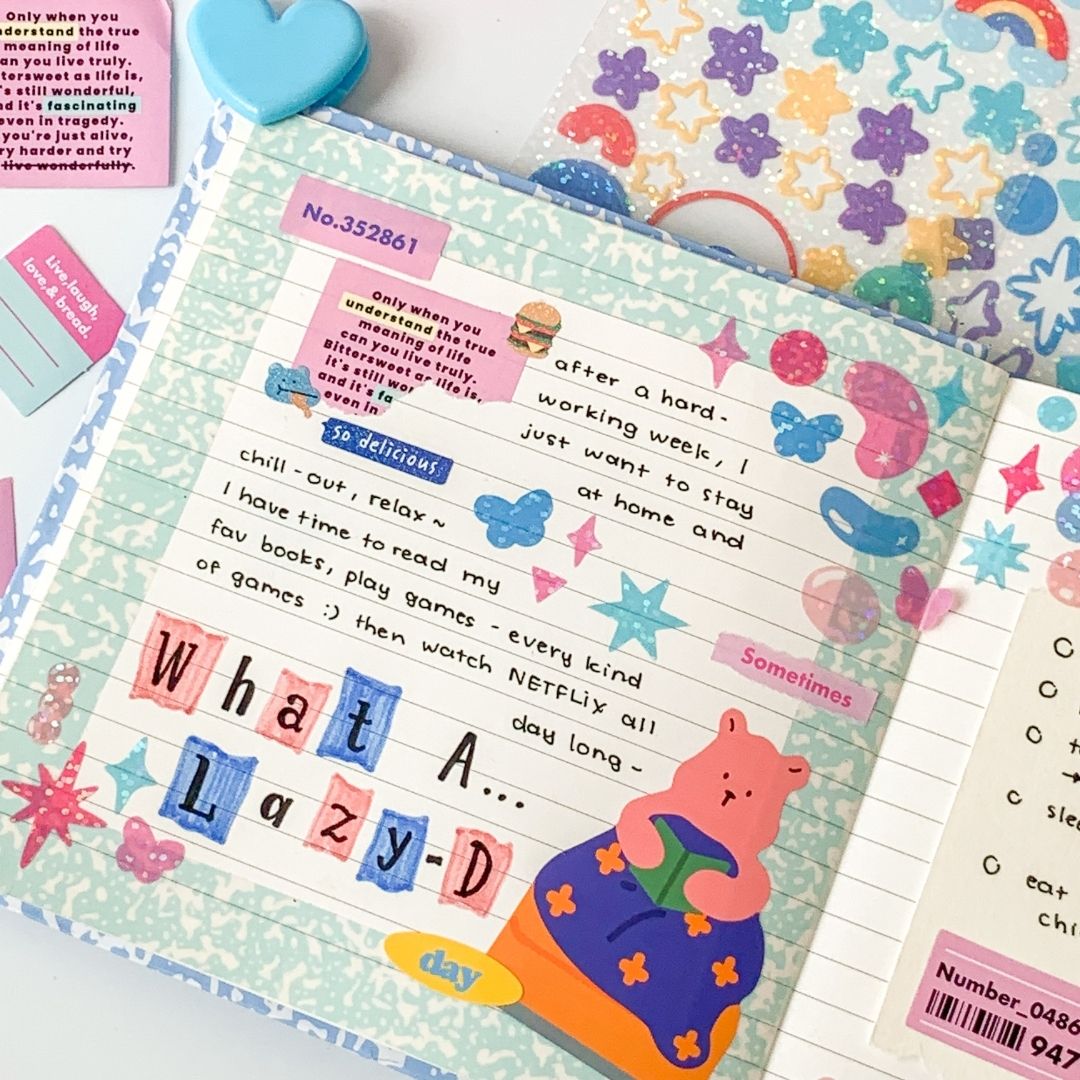 Only when you
understand the true
meaning of life
can you live truly.
tersweet as life is,
's still wonderful,
nd it's fascinating
even in tragedy.
you're just alive,
ry harder and try
live wonderfully.
Live, laugh,
love, & bread.
No.352861
Only when you
understand the true
meaning of life
can you live truly.
Bittersweet as life is,
it's still wo
and it's fa
even in
so delicious
after a hard-
working week, I
just want to stay
at home and
chill-out, relax ~
I have time to read my
fav books, play games - every kind
of games :) then watch NETFLiX all
day long -
Sometimes
What A...
Lazy-D
day
slee
eat
chi
Number_0486
947